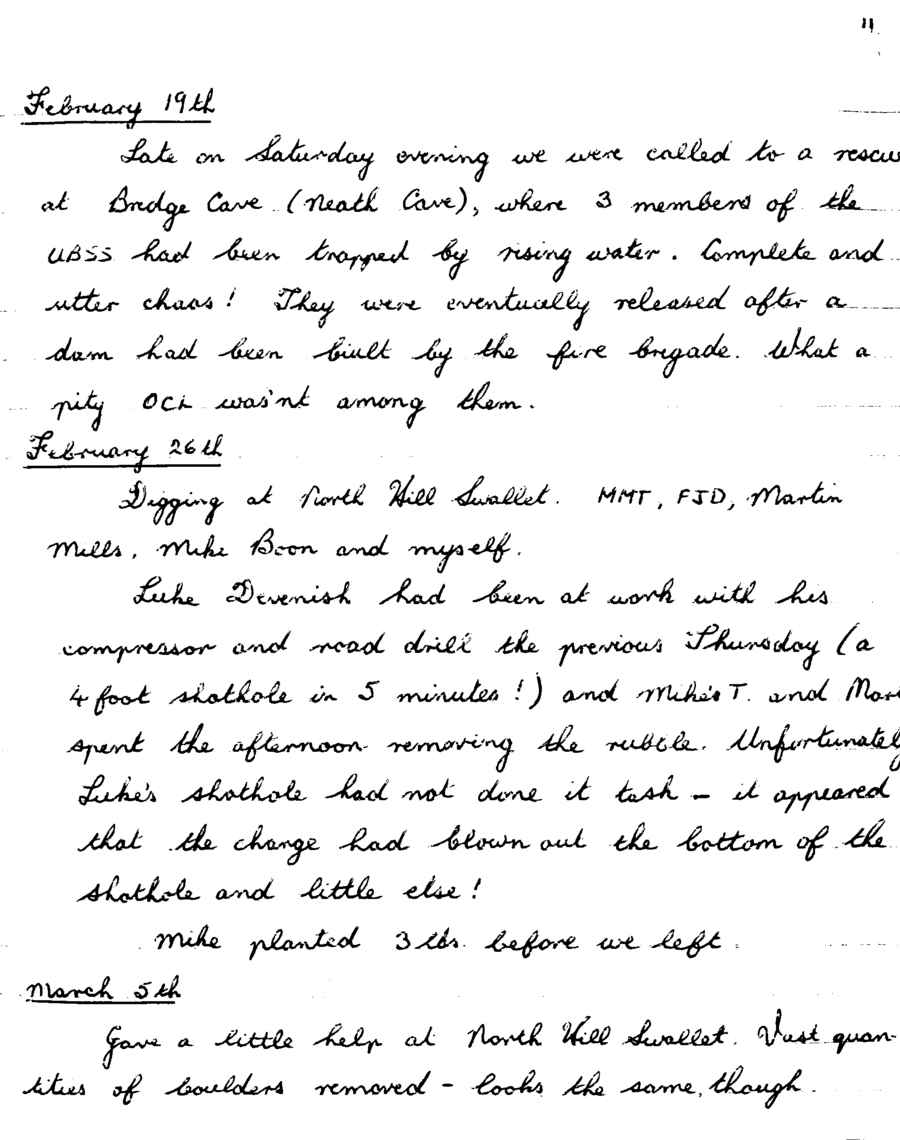 11
February 19th
Late on Saturday evening we were called to a rescue
at Bridge Cave (Neath Cave), where 3 members of the
UBSS had been trapped by rising water. Complete and
utter chaos! They were eventually released after a
dam had been built by the fire brigade. What a
pity OCL was'nt among them.
February 26th
Digging at North Hill Swallet. MMT, FJD, Martin
Mills, Mike Boon and myself.
Luke Devenish had been at work with his
compressor and road drill the previous Thursday (a
4 foot shothole in 5 minutes!) and Mike's T. and Mar
spent the afternoon removing the rubble. Unfortunately
Luke's shothole had not done it task – it appeared
that the charge had blown out the bottom of the
shothole and little else!
Mike planted 3 lbs. before we left.
March 5th
Gave a little help at North Hill Swallet. Vast quan-
tities of boulders removed – looks the same, though.